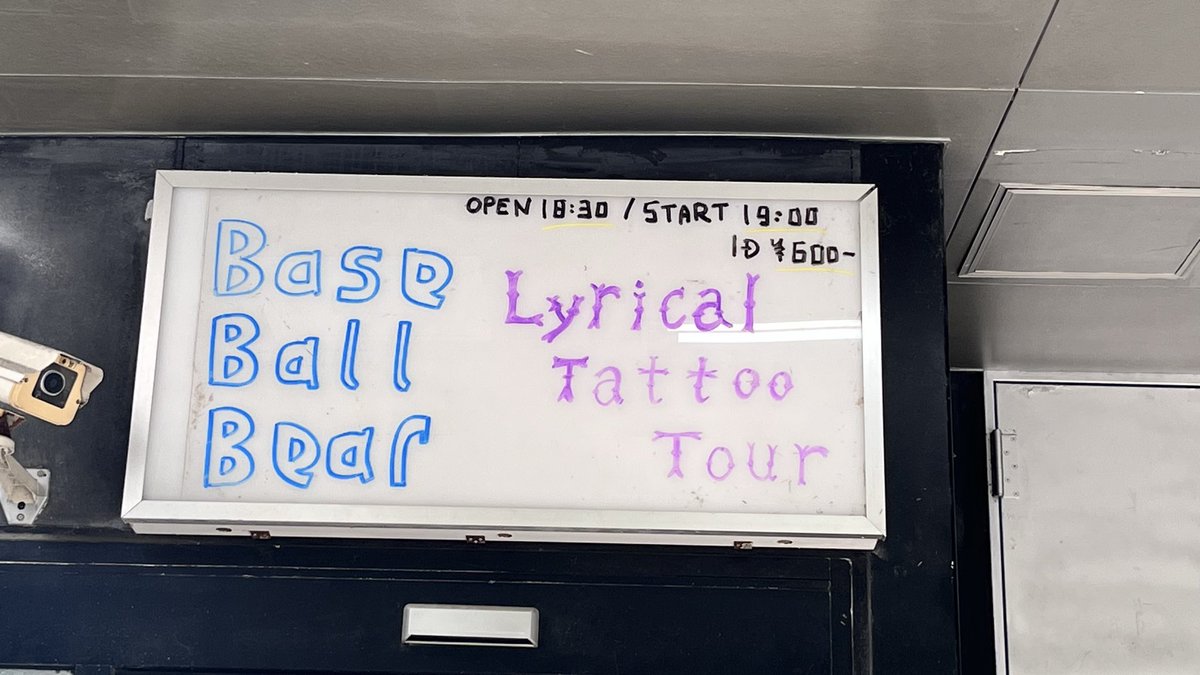 OPEN 18:30 / START 19:00
1D ¥600-
Base
Ball
Bear
Lyrical
Tattoo
Tour